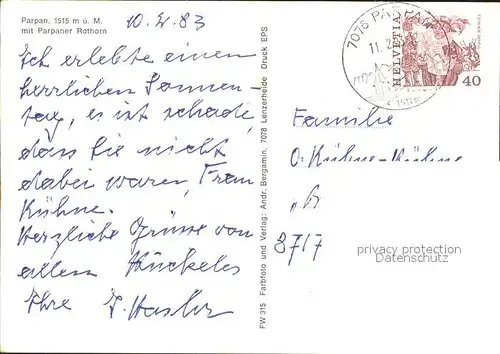 Parpan, 1515 m ü. M.
mit Parpaner Rothorn
10. 2. 83
Ich erlebte einen
herrlichen Sonnen-
tag, es ist schade,
dass Sie nicht
dabei waren, Frau
Kühne.
Herzliche Grüsse von
allem
Ihre
FW 315 Farbfoto und Verlag: Andr. Bergamin, 7078 Lenzerheide Druck EPS
7076 PARPAN
11. 2.
HELVETIA
40
Familie
O. Kühne-Kühne
8717
privacy protection
Datenschutz